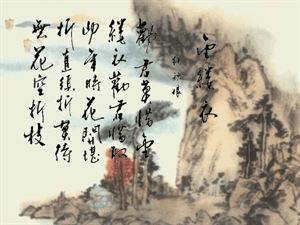 金缕衣
杜秋娘
劝君莫惜金
缕衣劝君惜取
少年时花開堪
折直须折莫待
無花空折枝